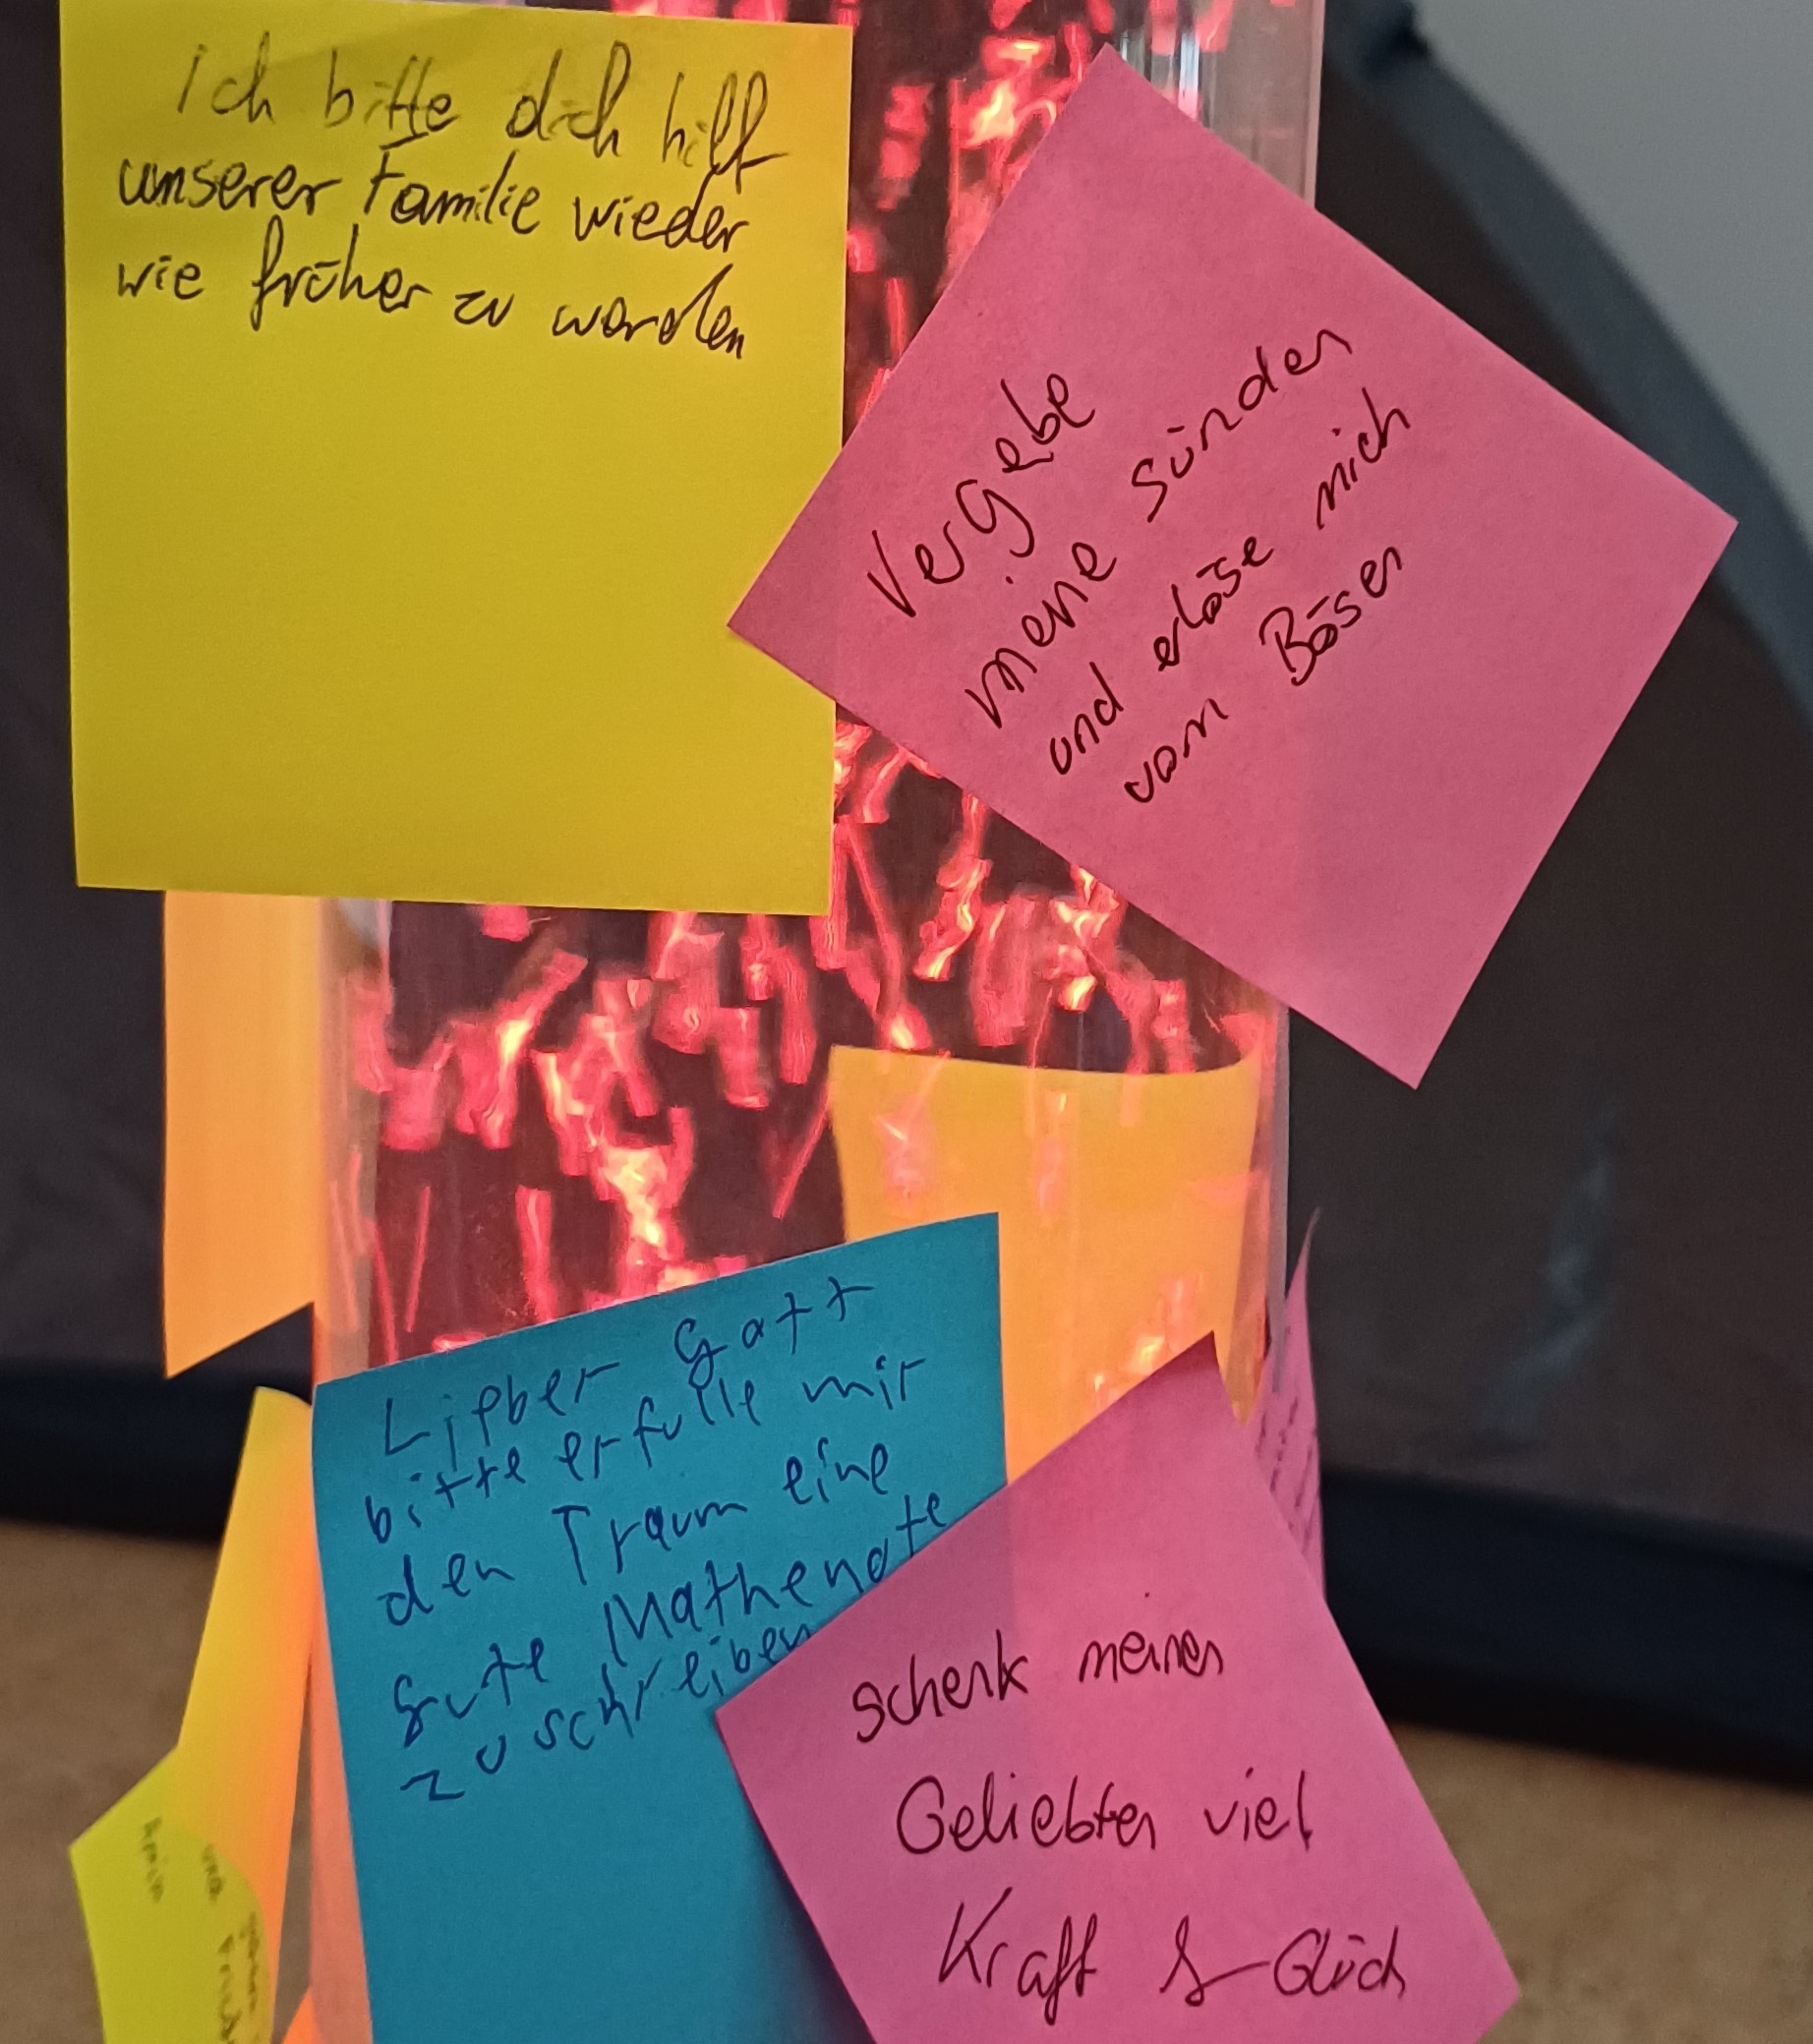 Ich bitte dich hilf
unserer Familie wieder
wie früher zu werden
Vergebe
meine Sünden
und erlöse mich
vom Bösen
Lieber Gott
bitte erfülle mir
den Traum eine
gute Mathenote
zu schreiben
schenk meinen
Geliebten viel
Kraft & Glück